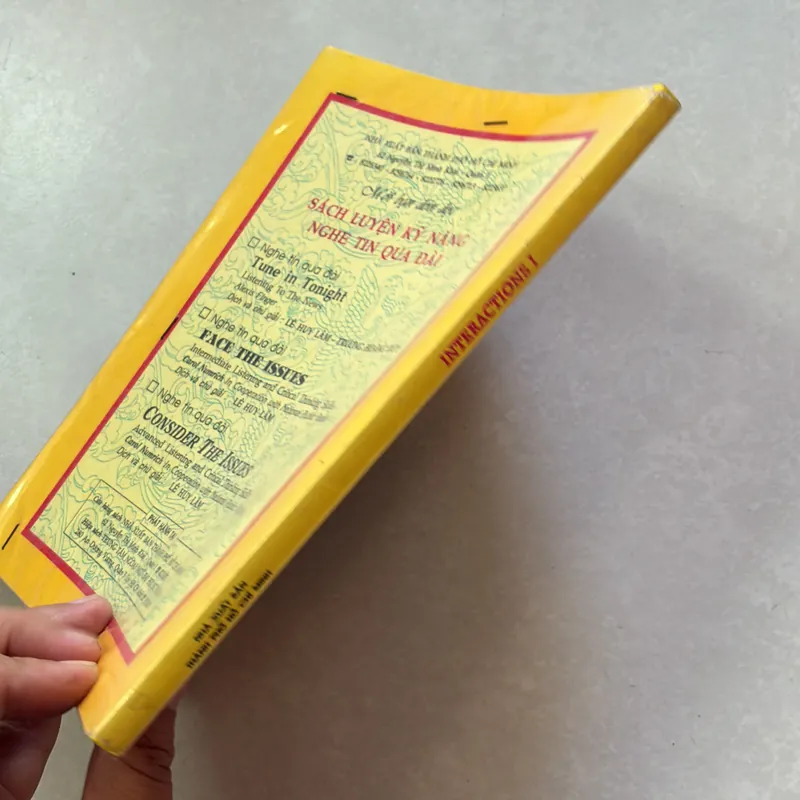 NHÀ XUẤT BẢN THÀNH PHỐ HỒ CHÍ MINH
62 Nguyễn Thị Minh Khai - Quận 1
Mời bạn đón đọc
SÁCH LUYỆN KỸ NĂNG
NGHE TIN QUA ĐÀI
Nghe tin qua đài
Tune in Tonight
Listening To The News
Alexis Finger
Dịch và chú giải : LÊ HUY LÂM - TRƯƠNG HOÀNG
Nghe tin qua đài
FACE THE ISSUES
Intermediate Listening and Critical Thinking Skills
Carol Numrich In Cooperation with National Public
Dịch và chú giải : LÊ HUY LÂM
Nghe tin qua đài
CONSIDER THE ISSUES
Advanced Listening and Critical Thinking Skills
Carol Numrich In Cooperation with National Public
Dịch và chú giải : LÊ HUY LÂM
PHÁT HÀNH TẠI
INTERACTIONS I
NHÀ XUẤT BẢN
THÀNH PHỐ HỒ CHÍ MINH